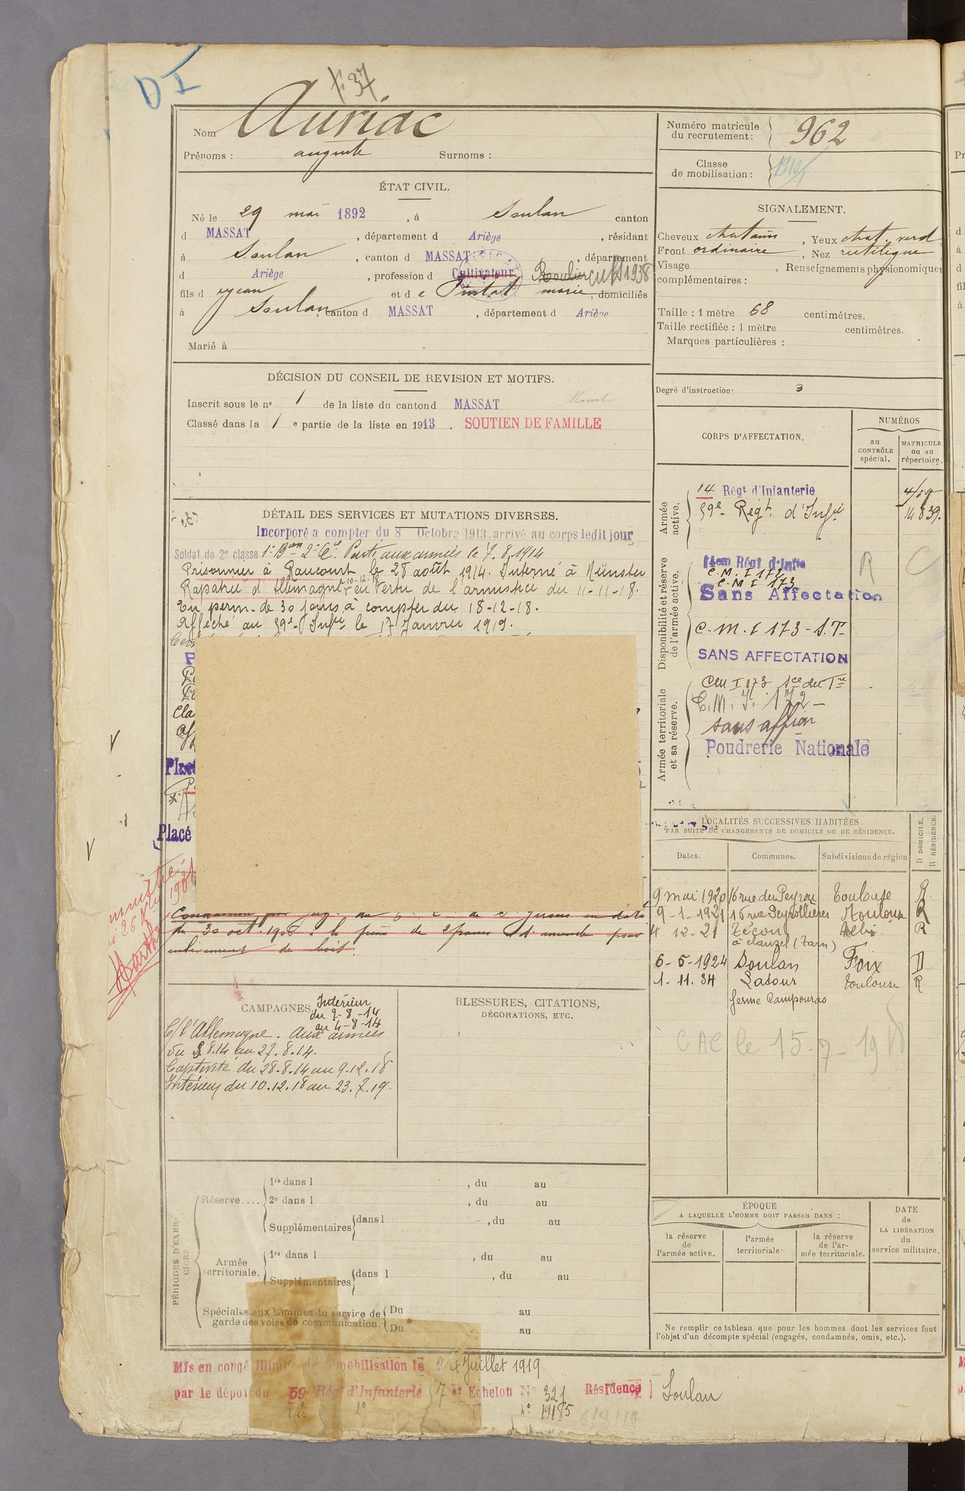 D I
F 37
Nom Auriac
Prénoms : auguste Surnoms :
ÉTAT CIVIL.
Né le 29 mai 1892, à Soulan canton
d MASSAT, département d Ariège, résidant
à Soulan, canton d MASSAT, département
d Ariège, profession d Cultivateur cult 1938
fils d Jean et de Puntat marie, domiciliés
à Soulan, canton d MASSAT, département d Ariège
Marié à
DÉCISION DU CONSEIL DE REVISION ET MOTIFS.
Inscrit sous le n° 1 de la liste du canton d MASSAT
Classé dans la 1e partie de la liste en 1913. SOUTIEN DE FAMILLE
DÉTAIL DES SERVICES ET MUTATIONS DIVERSES.
Incorporé a compter du 8 Octobre 1913. arrivé au corps ledit jour
Soldat de 2e classe Parti aux armées le 7.8.1914
Prisonnier à Raucourt le 28 août 1914. Interné à Münster
Rapatrié d'Allemagne 10-12-18 en vertu de l'armistice du 11-11-18.
En perm. de 30 jours à compter du 18-12-18.
Affecté au 59e Infrie le 17 Janvier 1919.
Cla
Placé
Placé
du 30 oct 190 à la peine de 2 francs d'amende pour
enlèvement de bois
CAMPAGNES
Intérieur
du 7-8-14
au 4-8-14
C/ l'Allemagne. Aux armées
du 5.8.14 au 27.8.14.
Captivité du 28.8.14 au 9.12.18
Intérieur du 10.12.18 au 23.7.19.
BLESSURES, CITATIONS,
DÉCORATIONS, ETC.
PÉRIODES D'EXERCICES
Réserve....
1re dans l , du au
2e dans l , du au
Supplémentaires dans l , du au
Armée territoriale.
1re dans l , du au
Supplémentaires dans l , du au
Spéciales aux hommes du service de garde des voies de communication.
Du au
Du au
Mis en congé illimité de démobilisation le 24 Juillet 1919
par le dépot du 59 Régt d'Infanterie 7 e Echelon N° 321 Résidence Soulan
N° 19185
Numéro matricule du recrutement : 962
Classe de mobilisation :
SIGNALEMENT.
Cheveux chatains, Yeux chat. verd
Front ordinaire, Nez rectiligne
Visage , Renseignements physionomiques
complémentaires :
Taille : 1 mètre 68 centimètres.
Taille rectifiée : 1 mètre centimètres.
Marques particulières :
Degré d'instruction : 3
CORPS D'AFFECTATION.
NUMÉROS
au CONTRÔLE spécial.
MATRICULE ou au répertoire.
Armée active.
14 Régt d'Infanterie
59e Régt d'Infie 14839.
Disponibilité et réserve de l'armée active.
14eme Régt d'Infie
C.M.I 172
C.M.I 173
Sans Affectation
R
C.M.I 173 - S.T-
SANS AFFECTATION
Armée territoriale et sa réserve.
C.M.I. 172 -
sans affon
Poudrerie Nationale
LOCALITÉS SUCCESSIVES HABITÉES
PAR SUITE DE CHANGEMENTS DE DOMICILE OU DE RÉSIDENCE.
Dates. Communes. Subdivisions de région
D DOMICILE. R RÉSIDENCE.
9 mai 1920 16 rue du Peyrou Toulouse R
9-1-1921 Toulouse R
4 12-21 R
6-5-1924 Soulan Foix D
1-11-34 Lasour Toulouse R
ferme Campouras
CAC le 15-7-19
ÉPOQUE
A LAQUELLE L'HOMME DOIT PASSER DANS :
la réserve de l'armée active.
l'armée territoriale.
la réserve de l'armée territoriale.
DATE de LA LIBÉRATION du service militaire.
Ne remplir ce tableau que pour les hommes dont les services font
l'objet d'un décompte spécial (engagés, condamnés, omis, etc.).